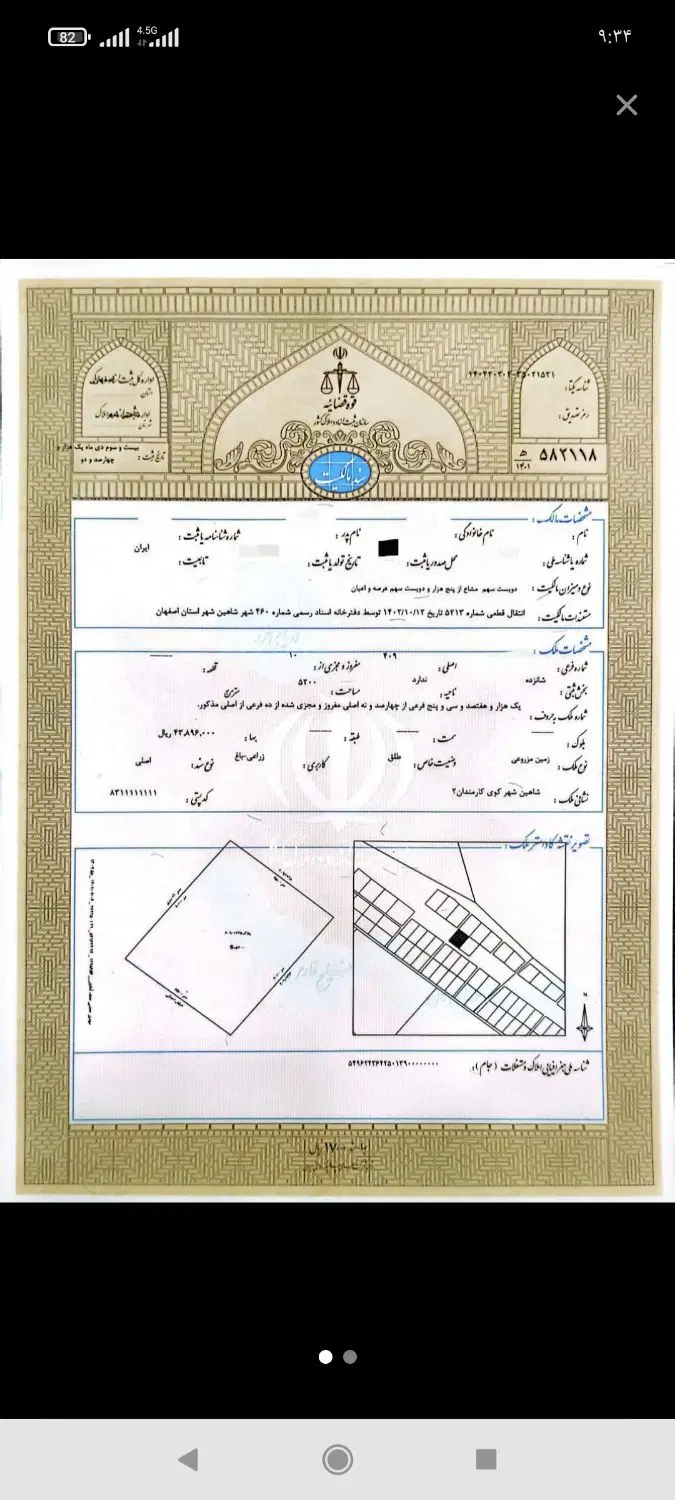 82 4.5G ۹:۳۴
قوه قضائیه
سازمان ثبت اسناد و املاک کشور
شناسه یکتا:
رمز تصدیق:
۵۸۲۱۱۸ ه ۱۴۰۱
تاریخ ثبت: بیست و سوم دی ماه یک هزار و
چهارصد و دو
سند مالکیت
مشخصات مالک:
نام: نام خانوادگی: نام پدر: شماره شناسنامه یا ثبت:
شماره یا شناسه ملی: محل صدور یا ثبت: تاریخ تولد یا ثبت: تابعیت: ایران
نوع و میزان مالکیت: دویست سهم مشاع از پنج هزار و دویست سهم عرصه و اعیان
مستندات مالکیت: انتقال قطعی شماره ۵۲۱۳ تاریخ ۱۴۰۲/۱۰/۱۲ توسط دفترخانه اسناد رسمی شماره ۴۶۰ شهر شاهین شهر استان اصفهان
مشخصات ملک:
شماره فرعی: اصلی: ۴۰۹ مفروز و مجزی از: ۱۰ قطعه:
بخش ثبتی: شانزده ناحیه: ندارد مساحت: ۵۲۰۰ مترمربع
شماره ملک به حروف: یک هزار و هفتصد و سی و پنج فرعی از چهارصد و نه اصلی مفروز و مجزی شده از ده فرعی از اصلی مذکور.
بلوک: سمت: طبقه: بها: ۴۳,۸۹۶,۰۰۰ ریال
نوع ملک: زمین مزروعی وضعیت خاص: طلق کاربری: زراعی-باغ نوع سند: اصلی
نشانی ملک: شاهین شهر کوی کارمندان۲ کد پستی: ۸۳۱۱۱۱۱۱۱۱
تصویر نقشه کاداستر ملک:
N
شناسه ملی جغرافیایی املاک و مستغلات (جام):